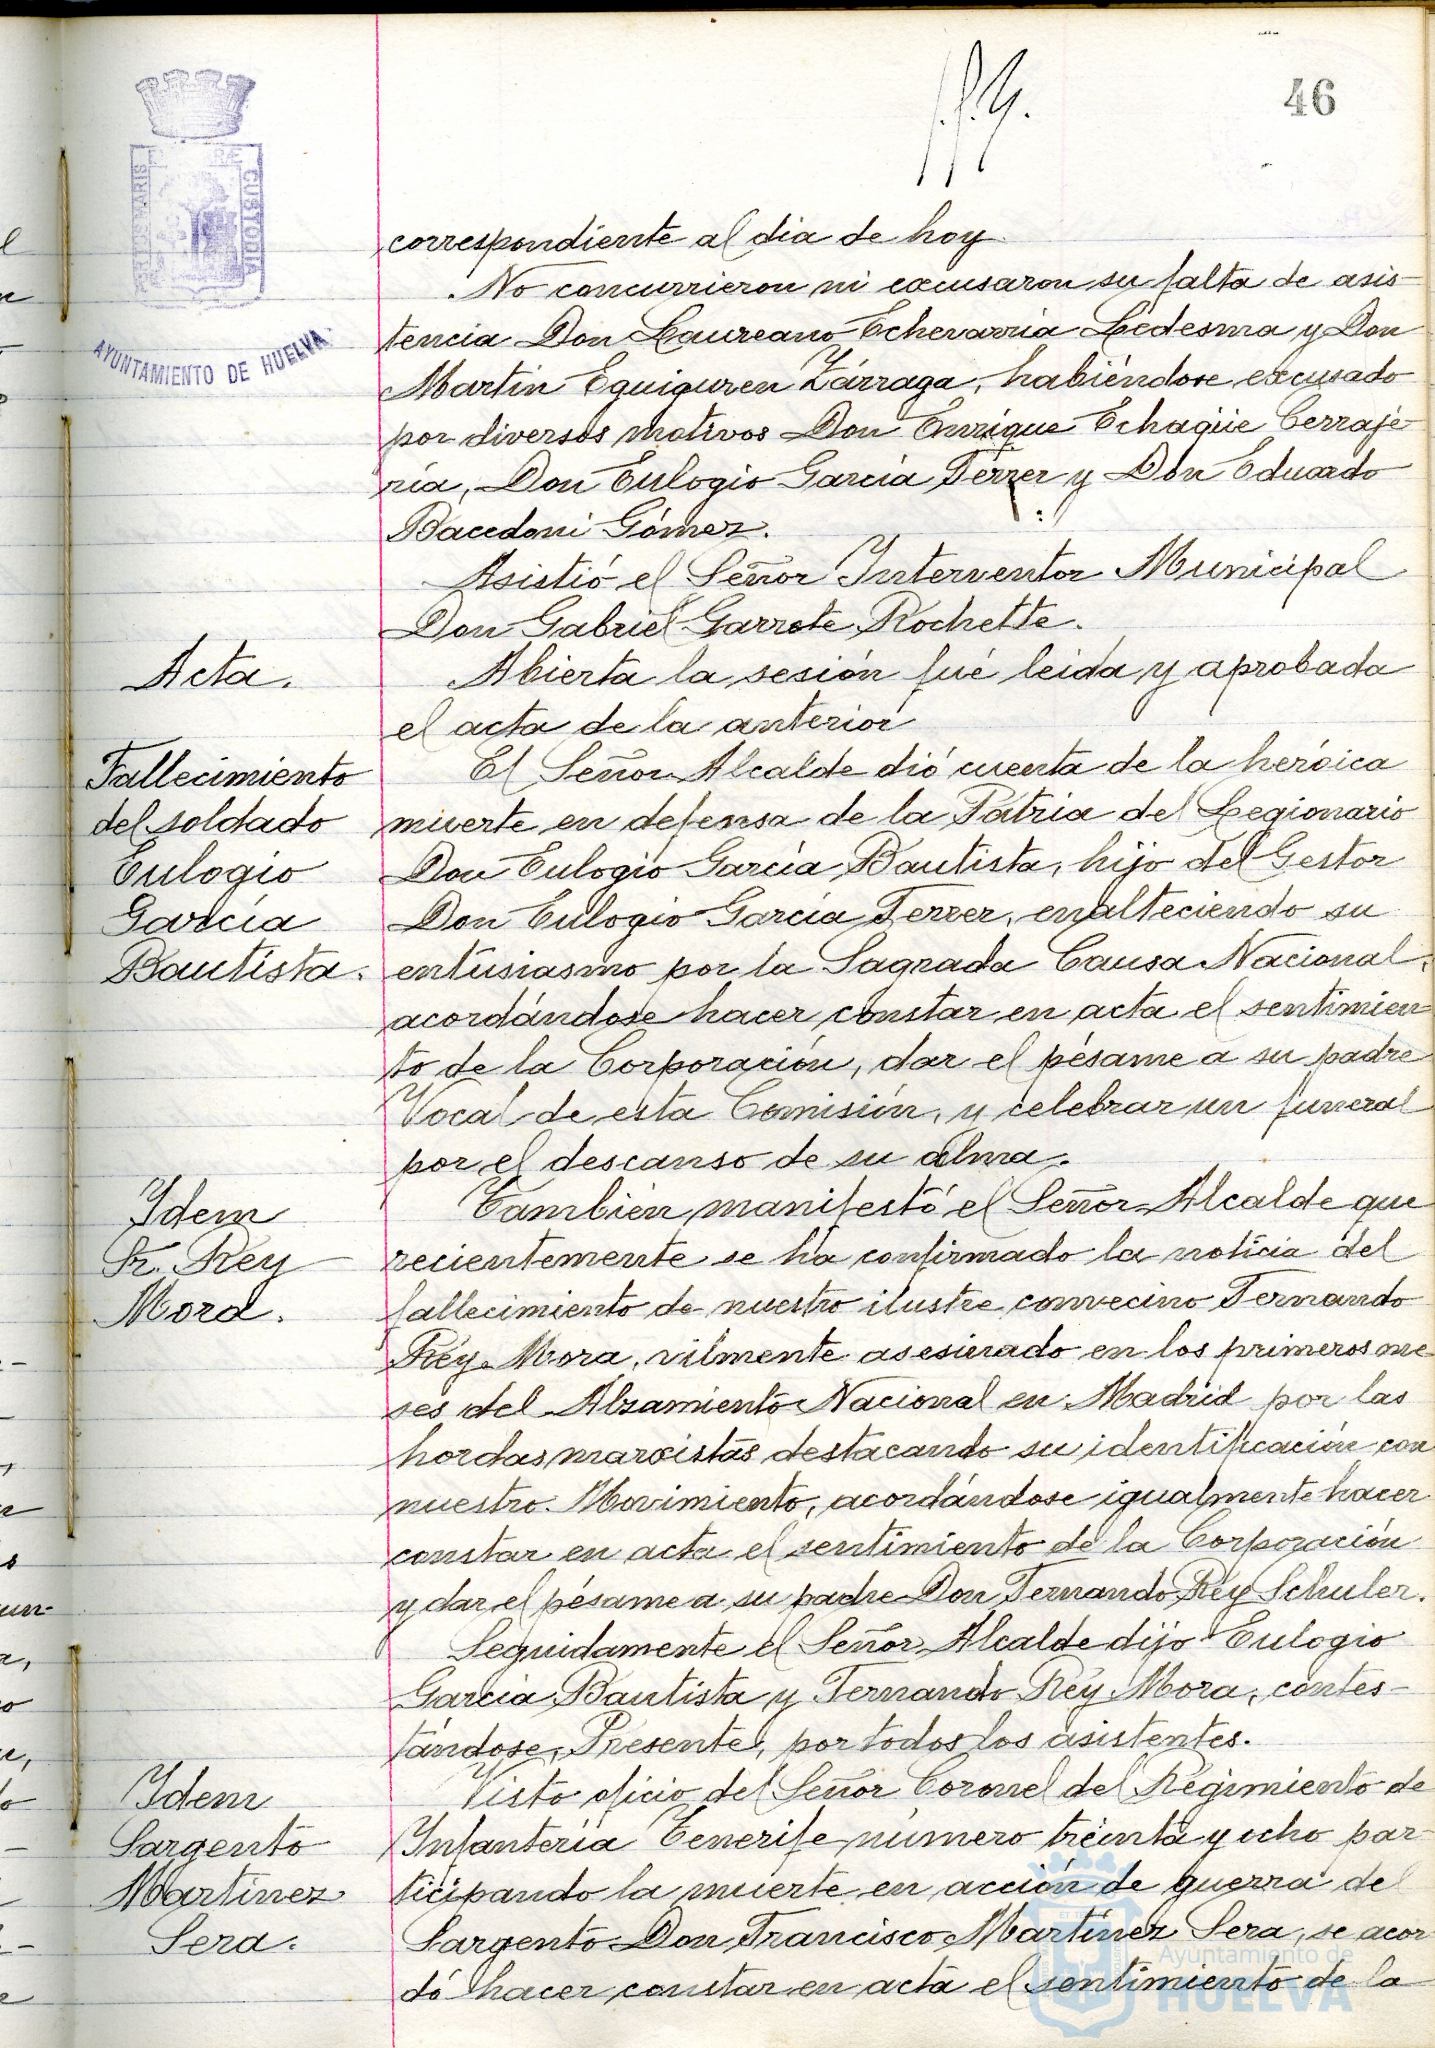 46
PORTUS MARIS ET TERRÆ CUSTODIA
AYUNTAMIENTO DE HUELVA
correspondiente al dia de hoy.
No concurrieron ni excusaron su falta de asis-
tencia Don Laureano Echevarria Ledesma y Don
Martin Eguiguren Zárraga, habiéndose excusado
por diversos motivos Don Enrique Echagüe Cerraje-
ría, Don Eulogio García Ferrer y Don Eduardo
Bacedoni Gómez.
Asistió el Señor Interventor Municipal
Don Gabriel Garrote Rochette.
Acta.
Abierta la sesión fué leida y aprobada
el acta de la anterior
Fallecimiento
del soldado
Eulogio
García
Bautista.
El Señor Alcalde dió cuenta de la heróica
muerte en defensa de la Patria del Legionario
Don Eulogio García Bautista, hijo del Gestor
Don Eulogio García Ferrer, enalteciendo su
entusiasmo por la Sagrada Causa Nacional,
acordándose hacer constar en acta el sentimien-
to de la Corporación, dar el pésame a su padre
Vocal de esta Comisión, y celebrar un funeral
por el descanso de su alma.
Idem
Sr. Rey
Mora.
También manifestó el Señor Alcalde que
recientemente se ha confirmado la noticia del
fallecimiento de nuestro ilustre convecino Fernando
Rey Mora, vilmente asesinado en los primeros me-
ses del Alzamiento Nacional en Madrid por las
hordas marxistas destacando su identificación con
nuestro Movimiento, acordándose igualmente hacer
constar en acta el sentimiento de la Corporación
y dar el pésame a su padre Don Fernando Rey Schuler.
Seguidamente el Señor Alcalde dijo Eulogio
García Bautista y Fernando Rey Mora, contes-
tándose, Presente, por todos los asistentes.
Idem
Sargento
Martinez
Sera.
Visto oficio del Señor Coronel del Regimiento de
Infantería Tenerife número treinta y ocho par-
ticipando la muerte en acción de guerra del
Sargento Don Francisco Martínez Sera, se acor-
dó hacer constar en acta el sentimiento de la
Ayuntamiento de
HUELVA